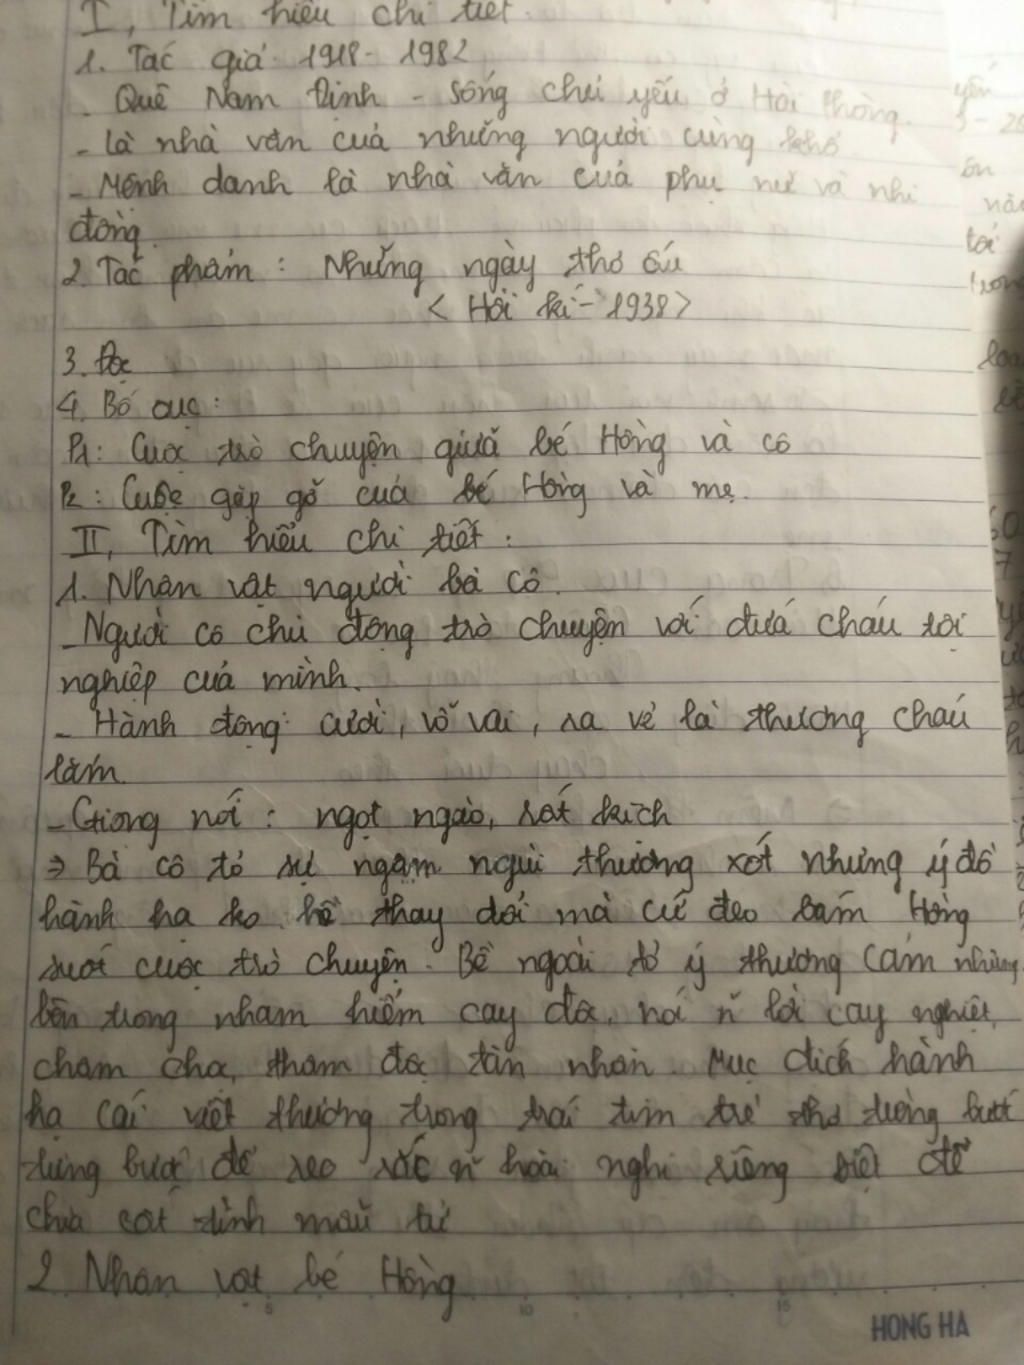 I, Tìm hiểu chi tiết.
1. Tác giả 1918 - 1982
- Quê Nam Định - Sống chủ yếu ở Hải Phòng.
- là nhà văn của những người cùng khổ
- Mệnh danh là nhà văn của phụ nữ và nhi
đồng.
2. Tác phẩm : Những ngày thơ ấu
< Hồi kí - 1938>
3. Đọc
4. Bố cục :
P1: Cuộc trò chuyện giữa bé Hồng và cô
P2 : Cuộc gặp gỡ của bé Hồng và mẹ.
II, Tìm hiểu chi tiết :
1. Nhân vật người bà cô.
- Người cô chủ động trò chuyện với đứa cháu tội
nghiệp của mình.
- Hành động: cười, vỗ vai, ra vẻ là thương cháu
lắm.
- Giọng nói : ngọt ngào, rất kịch
⇒ Bà cô tỏ sự ngậm ngùi thương xót nhưng ý đồ
hành hạ ko hề thay đổi mà cứ đeo bám Hồng
suốt cuộc trò chuyện. Bề ngoài tỏ ý thương cảm nhưng
bên trong nham hiểm cay độc, nói n~ lời cay nghiệt,
châm chọc, thâm độc tàn nhẫn. Mục đích hành
hạ cái vết thương trong trái tim trẻ thơ từng bước
từng bước để reo rắc n~ hoài nghi để
chia cắt tình mẫu tử
2 Nhân vật bé Hồng
5 10 15
HONG HA
yến
ôn
tôi